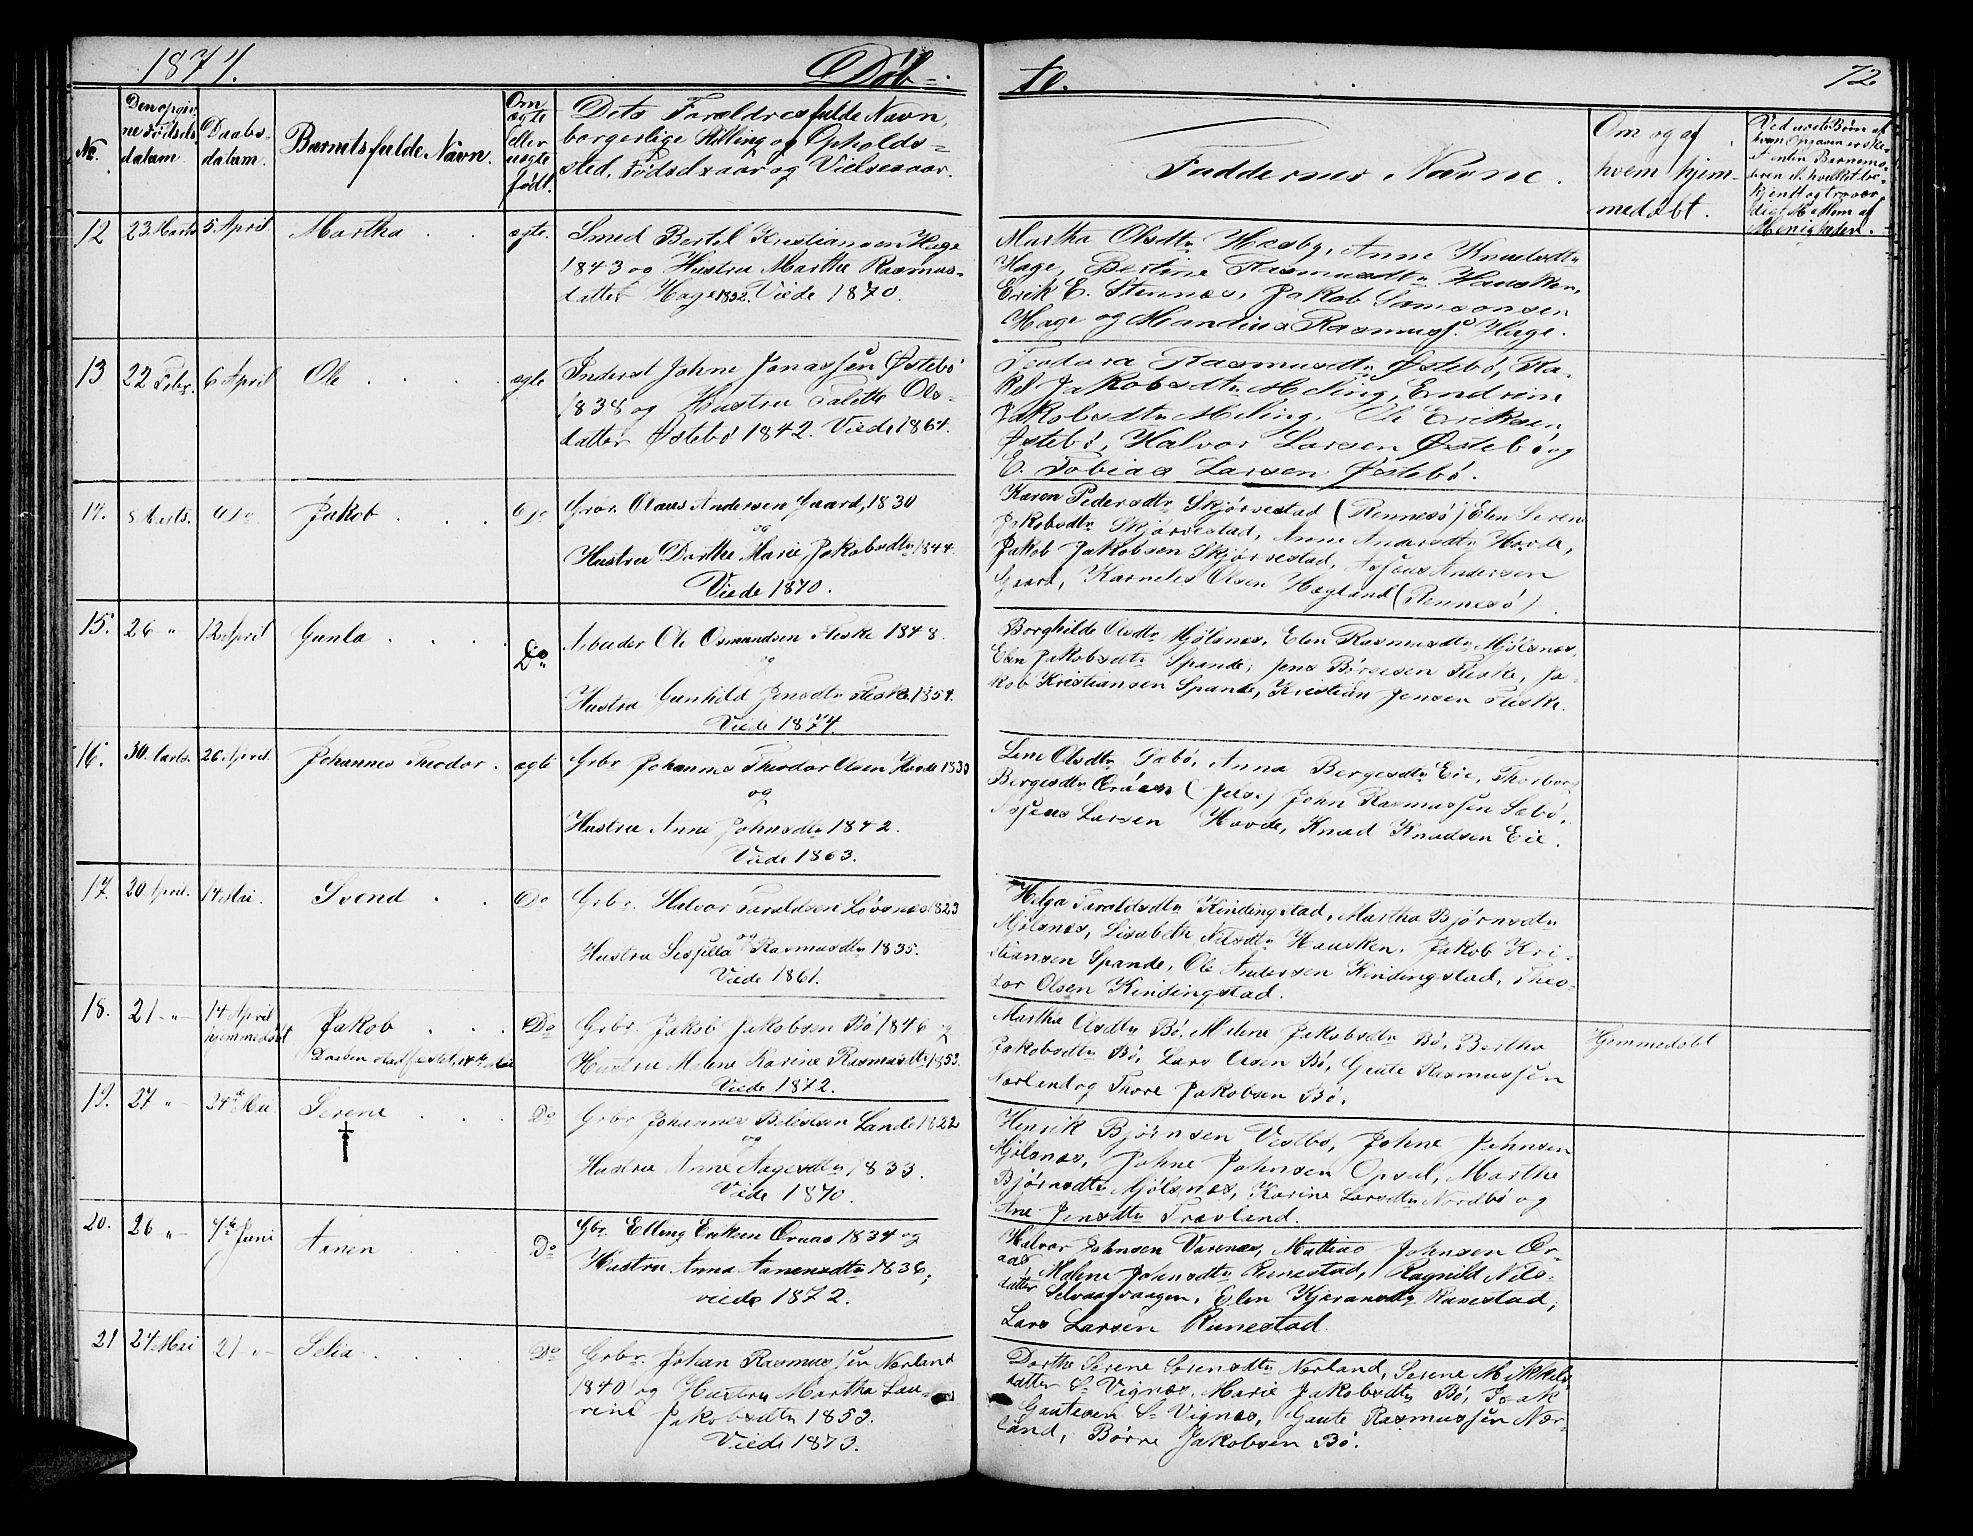 1874.
Døb-
te.
72
No.
Den opgiv
ne Fødsels
datum
Daabs-
datum.
Barnets fulde Navn.
Om
ægte
eller
uægte
født.
Dets Forældres fulde Navn,
borgerlige Stilling og Opholds-
sted, Fødselsaar og Vielsesaar.
Faddernes Navne.
Om og af
hvem hjem-
medøbt.
12 23 Marts 5 April Martha . . ægte. Smed Bertel Kristiansen Hage
1843 og Hustru Marthe Rasmus-
datter Hage 1852. Viede 1870.
Martha Olsdtr Hæsby, Anne Knudsdtr
Hage, Bertine Rasmusdtr Hausken,
Erik E. Stennes, Jakob Samsonsen
Hage og Mandius Rasmuss. Hage.
13 22 Febr. 6 April Ole . . . . ægte Inderst Johne Jonassen Østebø
1838 og Hustru Talette Ols-
datter Østebø 1842. Viede 1864.
Teodora Rasmusdtr Østebø, Ra-
kel Jakobsdtr Meling, Endrine
Jakobsdtr Meling, Ole Eriksen
Østebø, Halvor Larsen Østebø og
E. Tobias Larsen Østebø.
14. 8 Marts. Do Jakob . . . Do Grbr. Olaus Andersen Gaard, 1830
og
Hustru Dorthe Marie Jakobsdtr 1844.
Viede 1870.
Karen Pedersdtr Skjørvestad (Rennesø) Elen Seren
Jakobsdtr Skjørvestad, Anne Andersdtr Hovde,
Jakob Jakobsen Skjørvestad, Assens Andersen
Gaard, Karnelis Olsen Hægland (Rennesø).
15. 26 " 12 April Gunla . . . Do Arbeider Ole Osmundsen Fleske 1848.
og
Hustru Gunhild Jensdtr Fleske 1854.
Viede 1874.
Borghilde Olsdtr Mjølsnes, Elen Rasmusdtr Mjølsnes,
Elen Jakobsdtr Spande, Jens Børgesen Fleske, Ja-
kob Kristiansen Spande, Kristian Jensen Fleske.
16. 30 Marts. 26 April. Johannes Theodor. ægte Grbr Johannes Theodor Olsen Hovde 1830
og
Hustru Anne Johnsdtr 1842.
Viede 1863.
Lene Olsdtr Søbø, Anna Bergesdtr Eie, Thorbor
Bergesdtr (Jelse) John Rasmussen Søbø,
Assens Larsen Hovde, Knud Knudsen Eie.
17. 20 April. 14 Mai. Svend . . Do Grbr. Halvor Taraldsen Løvsnes 1823
og
Hustru Sissilla Rasmusdtr 1835.
Viede 1861.
Helga Taraldsdtr Kindingstad, Martha Bjørnsdtr
Mjølsnes, Lisabeth Nilsdtr Hausken, Jakob Kri-
stiansen Spande, Ole Andersen Kindingstad, Theo-
dor Olsen Kindingstad.
18. 21 - " - 14 April
hjemmedøbt
Jakob . . .
Daaben stadfestet, 14de Mai
Do Grbr. Jakob Jakobsen Bø 1846 og
Hustru Malene Karine Rasmusdtr 1853.
Viede 1872.
Martha Olsdtr Bø, Malene Jakobsdtr Bø, Bertha
Jakobsdtr Bø, Lars Olsen Bø, Gaute Rasmussen
Nørland og Thore Jakobsen Bø.
Hjemmedøbt
19. 27 " 24de Mai Serene . . . Do Grbr Johannes Lande 1822
og
Hustru Anne Aagesdtr 1833.
Viede 1870.
Henrik Bjørnsen Vestbø, Johne Johnsen
Mjølsnes, Johne Johnsen Opsal, Marthe
Bjørnsdtr Mjølsnes, Karine Larsdtr Nordbø og
Ane Jensdtr Træland.
20. 26 " 7de Juni Aanen . . Do Gbr. Elling Eriksen Ørnaas 1834 og
Hustru Anna Aanensdtr 1836,
viede 1872.
Halvor Johnsen Varenes, Mattias Johnsen Ør-
aas, Malene Johnsdtr Runestad, Ragnild Nils-
datter Selvaagvaagen, Elen Kjøransdtr Runestad,
Lars Larsen Runestad.
21 24 Mai 21 - " - Selia . . . . Do Grbr. Johan Rasmussen Nørland
1840 og Hustru Martha Lau-
rine Jakobsdtr 1853.
Viede 1873.
Dorthe Serene Sørensdtr Nørland, Serene Mikkels
datter S. Vignes, Marie Jakobsdtr Bø, Isak
Gautesen S. Vignes, Gaute Rasmussen Nør-
land, Børre Jakobsen Bø.